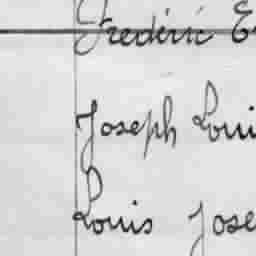 Frédéric E
Joseph Loui
Louis Jose